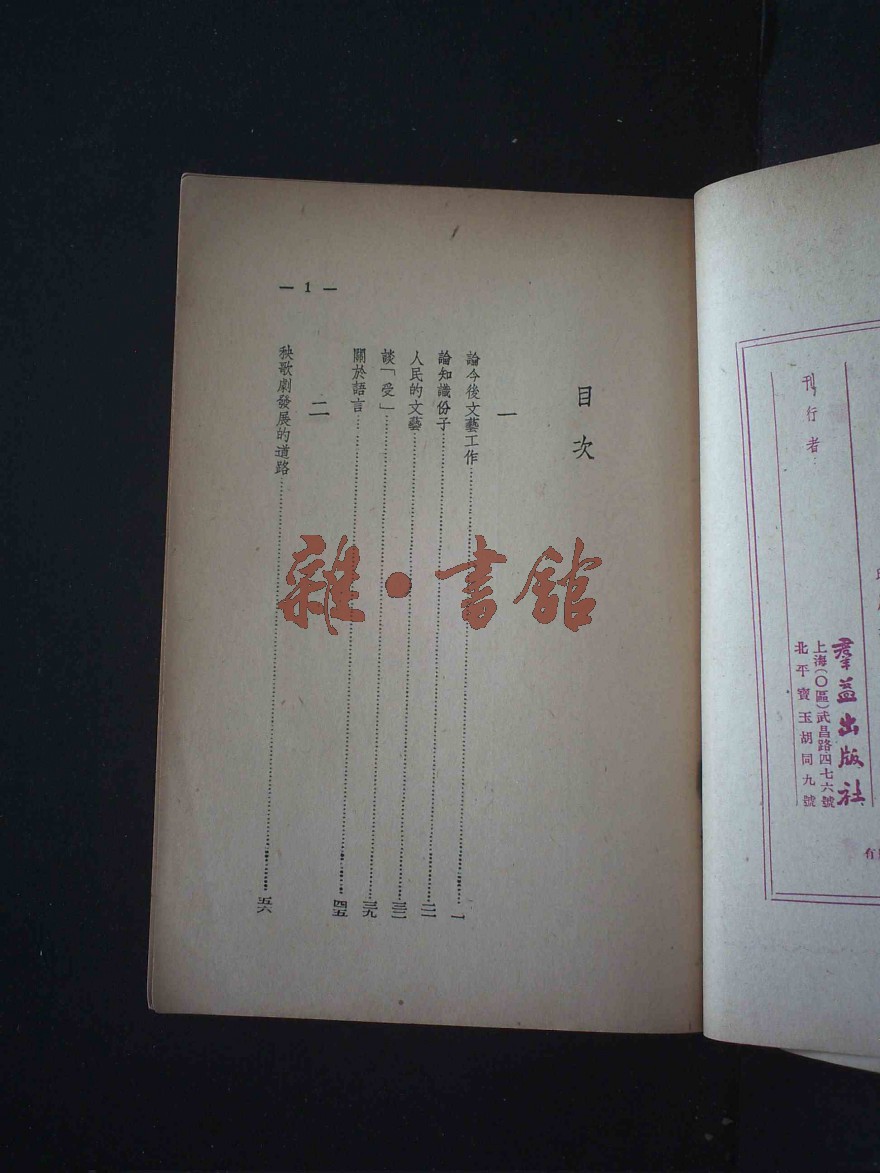 目次
一
論今後文藝工作……一
論知識份子……
人民的文藝……
談「受」……三九
關於語言……四五
二
秧歌劇發展的道路……五六
— 1 —
雜·書館
刊行者
羣益出版社
上海(〇區)武昌路四七六號
北平寶玉胡同九號
有